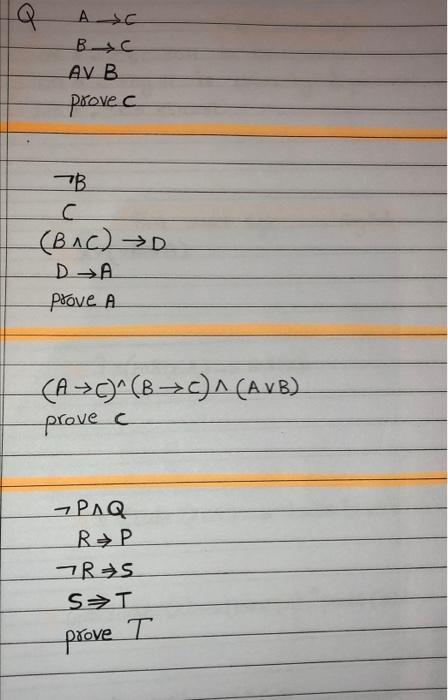 Q A → C
B → C
A ∨ B
prove C
¬B
C
(B ∧ C) → D
D → A
prove A
(A → C) ∧ (B → C) ∧ (A ∨ B)
prove C
¬P ∧ Q
R ⇒ P
¬R ⇒ S
S ⇒ T
prove T